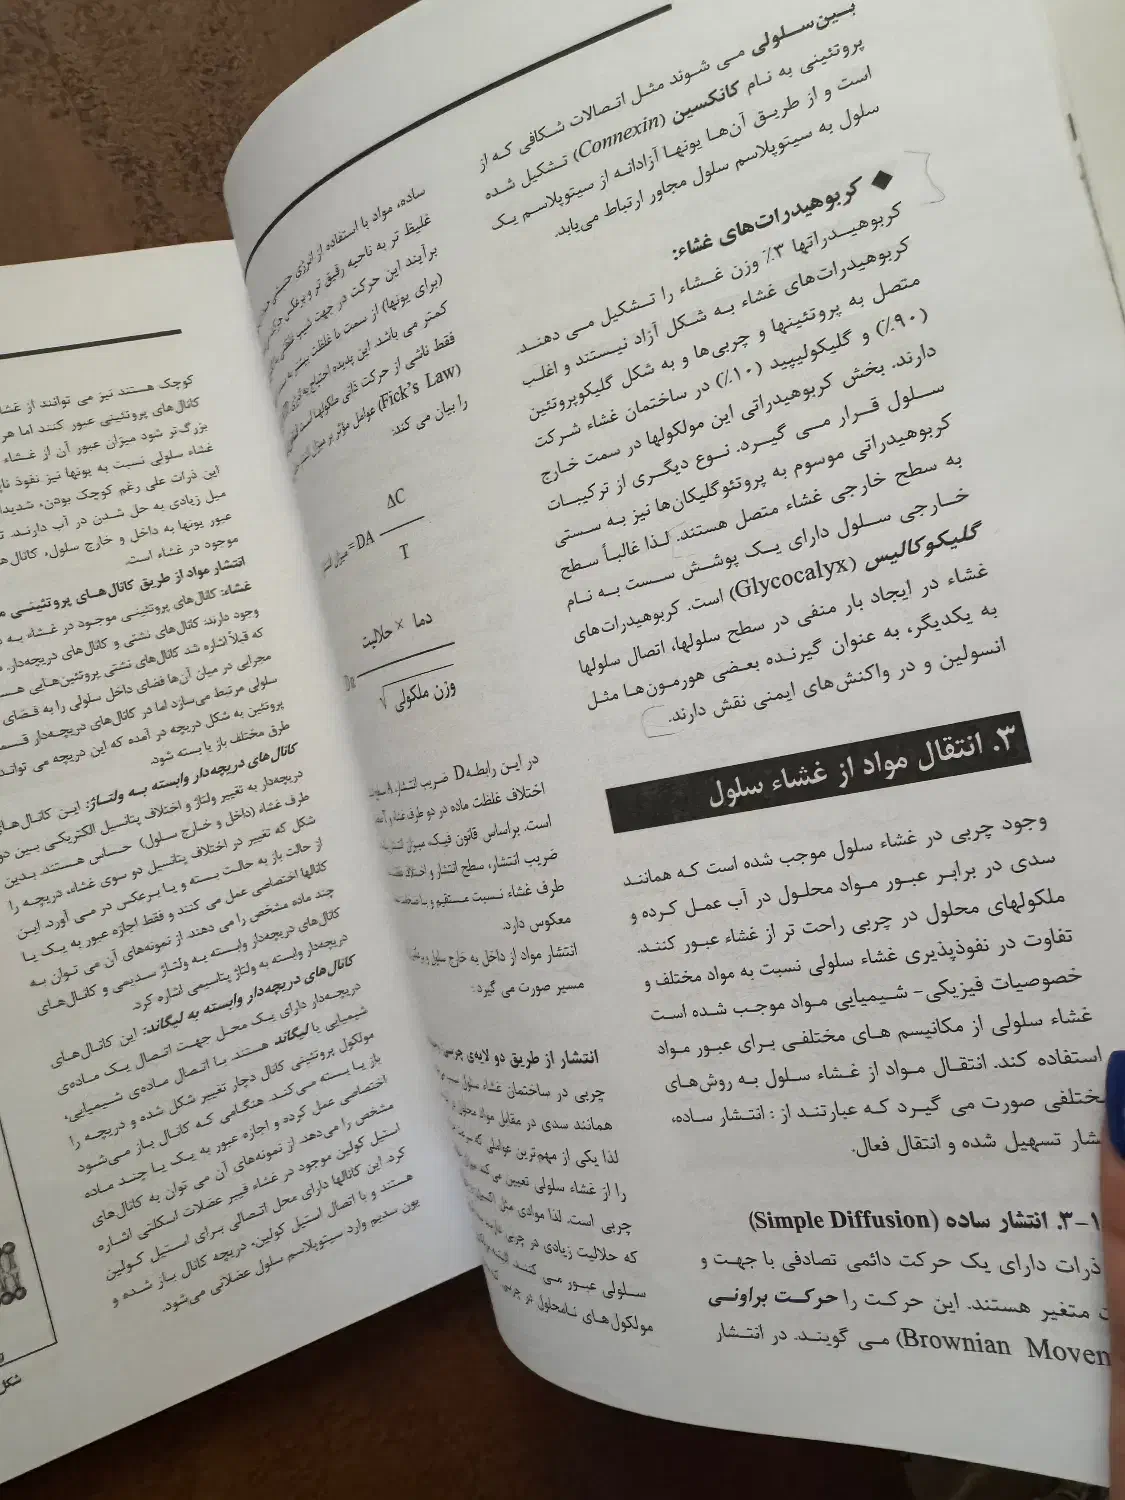 بین‌سلولی می شوند مثل اتصالات شکافی که از
پروتئینی به نام کانکسین (Connexin) تشکیل شده
است و از طریق آن‌ها یونها آزادانه از سیتوپلاسم یک
سلول به سیتوپلاسم سلول مجاور ارتباط می‌یابد.
◆ کربوهیدرات‌های غشاء:
کربوهیدراتها ۳٪ وزن غشاء را تشکیل می دهند.
کربوهیدرات‌های غشاء به شکل آزاد نیستند و اغلب
متصل به پروتئینها و چربی‌ها و به شکل گلیکوپروتئین
(۹۰٪) و گلیکولیپید (۱۰٪) در ساختمان غشاء شرکت
دارند. بخش کربوهیدراتی این مولکولها در سمت خارج
سلول قرار می گیرد. نوع دیگری از ترکیبات
کربوهیدراتی موسوم به پروتئوگلیکان‌ها نیز به سستی
به سطح خارجی غشاء متصل هستند. لذا غالباً سطح
خارجی سلول دارای یک پوشش سست به نام
گلیکوکالیس (Glycocalyx) است. کربوهیدرات‌های
غشاء در ایجاد بار منفی در سطح سلولها، اتصال سلولها
به یکدیگر، به عنوان گیرنده بعضی هورمون‌ها مثل
انسولین و در واکنش‌های ایمنی نقش دارند.
۳. انتقال مواد از غشاء سلول
وجود چربی در غشاء سلول موجب شده است که همانند
سدی در برابر عبور مواد محلول در آب عمل کرده و
ملکولهای محلول در چربی راحت تر از غشاء عبور کنند.
تفاوت در نفوذپذیری غشاء سلولی نسبت به مواد مختلف و
خصوصیات فیزیکی- شیمیایی مواد موجب شده است
غشاء سلولی از مکانیسم های مختلفی برای عبور مواد
استفاده کند. انتقال مواد از غشاء سلول به روش‌های
مختلفی صورت می گیرد که عبارتند از : انتشار ساده،
تسهیل شده و انتقال فعال.
۳-۱. انتشار ساده (Simple Diffusion)
ذرات دارای یک حرکت دائمی تصادفی با جهت و
متغیر هستند. این حرکت را حرکت براونی
(Brownian می گویند. در انتشار
ساده، مواد با استفاده از انرژی جنبشی
غلیظ تر به ناحیه رقیق تر و برعکس
برآیند این حرکت در جهت شیب
(برای یونها) از سمت با غلظت بیشتر به
کمتر می باشد. این پدیده احتیاج به انرژی
فقط ناشی از حرکت ذاتی ملکولها است
(Fick's Law) عوامل مؤثر بر میزان انتشار
را بیان می کند:
میزان انتشار = DA ΔC
T
دما × حلالیت
√وزن ملکولی
در این رابطه D ضریب انتشار،
اختلاف غلظت ماده در دو طرف غشاء و
است. براساس قانون فیک، میزان انتشار
ضریب انتشار، سطح انتشار و اختلاف
طرف غشاء نسبت مستقیم و با ضخامت
معکوس دارد.
انتشار مواد از داخل به خارج سلول و برعکس
مسیر صورت می گیرد:
انتشار از طریق دو لایه‌ی چربی
چربی در ساختمان غشاء سلول سبب
همانند سدی در مقابل مواد محلول
لذا یکی از مهم‌ترین عواملی که سرعت
را از غشاء سلولی تعیین می کند میزان
چربی است. لذا موادی مثل اکسیژن
که حلالیت زیادی در چربی دارند
سلولی عبور می کنند. البته
مولکول‌های نامحلول در چربی
کوچک هستند نیز می توانند از غشاء
کانال‌های پروتئینی عبور کنند اما هر
بزرگ‌تر شود میزان عبور آن از غشاء
غشاء سلولی نسبت به یونها نیز نفوذ
این ذرات علی رغم کوچک بودن، شدیداً
میل زیادی به حل شدن در آب دارند.
عبور یونها به داخل و خارج سلول، کانال‌های
موجود در غشاء است.
انتشار مواد از طریق کانال‌های پروتئینی
غشاء: کانال‌های پروتئینی موجود در غشاء به
وجود دارند: کانال‌های نشتی و کانال‌های دریچه‌دار.
که قبلاً اشاره شد کانال‌های نشتی پروتئین‌هایی
مجرایی در میان آن‌ها فضای داخل سلولی را به فضای
سلولی مرتبط می‌سازد اما در کانال‌های دریچه‌دار
پروتئین به شکل دریچه در آمده که این دریچه می تواند
طرق مختلف باز یا بسته شود.
کانال‌های دریچه‌دار وابسته به ولتاژ: این کانال‌های
دریچه‌دار به تغییر ولتاژ و اختلاف پتانسیل الکتریکی بین دو
طرف غشاء (داخل و خارج سلول) حساس هستند. بدین
شکل که تغییر در اختلاف پتانسیل دو سوی غشاء، دریچه را
از حالت باز به حالت بسته و یا برعکس در می آورد. این
کانالها اختصاصی عمل می کنند و فقط اجازه عبور به یک یا
چند ماده مشخص را می دهند. از نمونه‌های آن می توان به
کانال‌های دریچه‌دار وابسته به ولتاژ سدیمی و کانال‌های
دریچه‌دار وابسته به ولتاژ پتاسیمی اشاره کرد.
کانال‌های دریچه‌دار وابسته به لیگاند: این کانال‌های
دریچه‌دار دارای یک محل جهت اتصال یک ماده‌ی
شیمیایی یا لیگاند هستند. با اتصال ماده‌ی شیمیایی،
مولکول پروتئینی کانال دچار تغییر شکل شده و دریچه را
باز یا بسته می‌کند. هنگامی که کانال باز می‌شود
اختصاصی عمل کرده و اجازه عبور به یک یا چند ماده
مشخص را می‌دهد. از نمونه‌های آن می توان به کانال‌های
استیل کولین موجود در غشاء فیبر عضلات اسکلتی اشاره
کرد. این کانالها دارای محل اتصالی برای استیل کولین
هستند و با اتصال استیل کولین، دریچه کانال باز شده و
یون سدیم وارد سیتوپلاسم سلول عضلانی می‌شود.
شکل